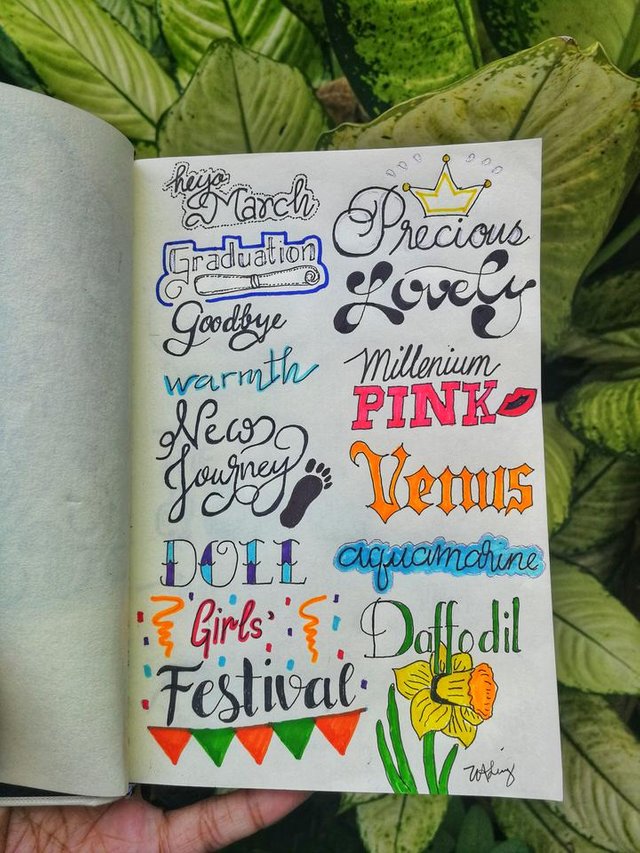 heyo
March
Graduation
Goodbye
warmth
New
Journey
DOLL
Girls'
Festival
Precious
Lovely
Millenium
PINK
Venus
aquamarine
Daffodil